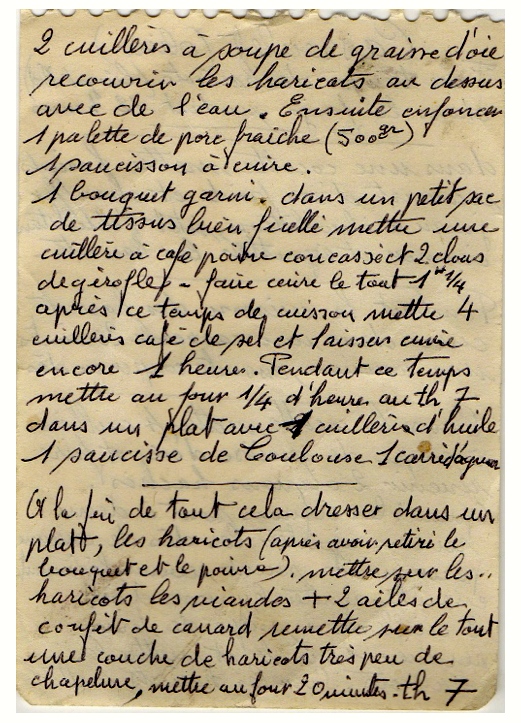 2 cuillères à soupe de graisse d'oie
recouvrir les haricots au dessus
avec de l'eau. Ensuite enfoncer
1 palette de porc fraiche (500gr)
1 saucisson à cuire.
1 bouquet garni. dans un petit sac
de tissus bien ficellé mettre une
cuillère à café poivre concassé et 2 clous
de girofles - faire cuire le tout 1H 1/4
après ce temps de cuisson mettre 4
cuillères café de sel et laisser cuire
encore 1 heures. Pendant ce temps
mettre au four 1/4 d'heures au th 7
dans un plat avec cuillères d'huile
1 saucisse de Toulouse 1 carré d'agneau
A la fin de tout cela dresser dans un
platt, les haricots (après avoir retiré le
bouquet et le poivre). mettre sur les..
haricots les viandes + 2 ailes de
confit de canard remettre sur le tout
une couche de haricots très peu de
chapelure, mettre au four 20 minutes. th 7